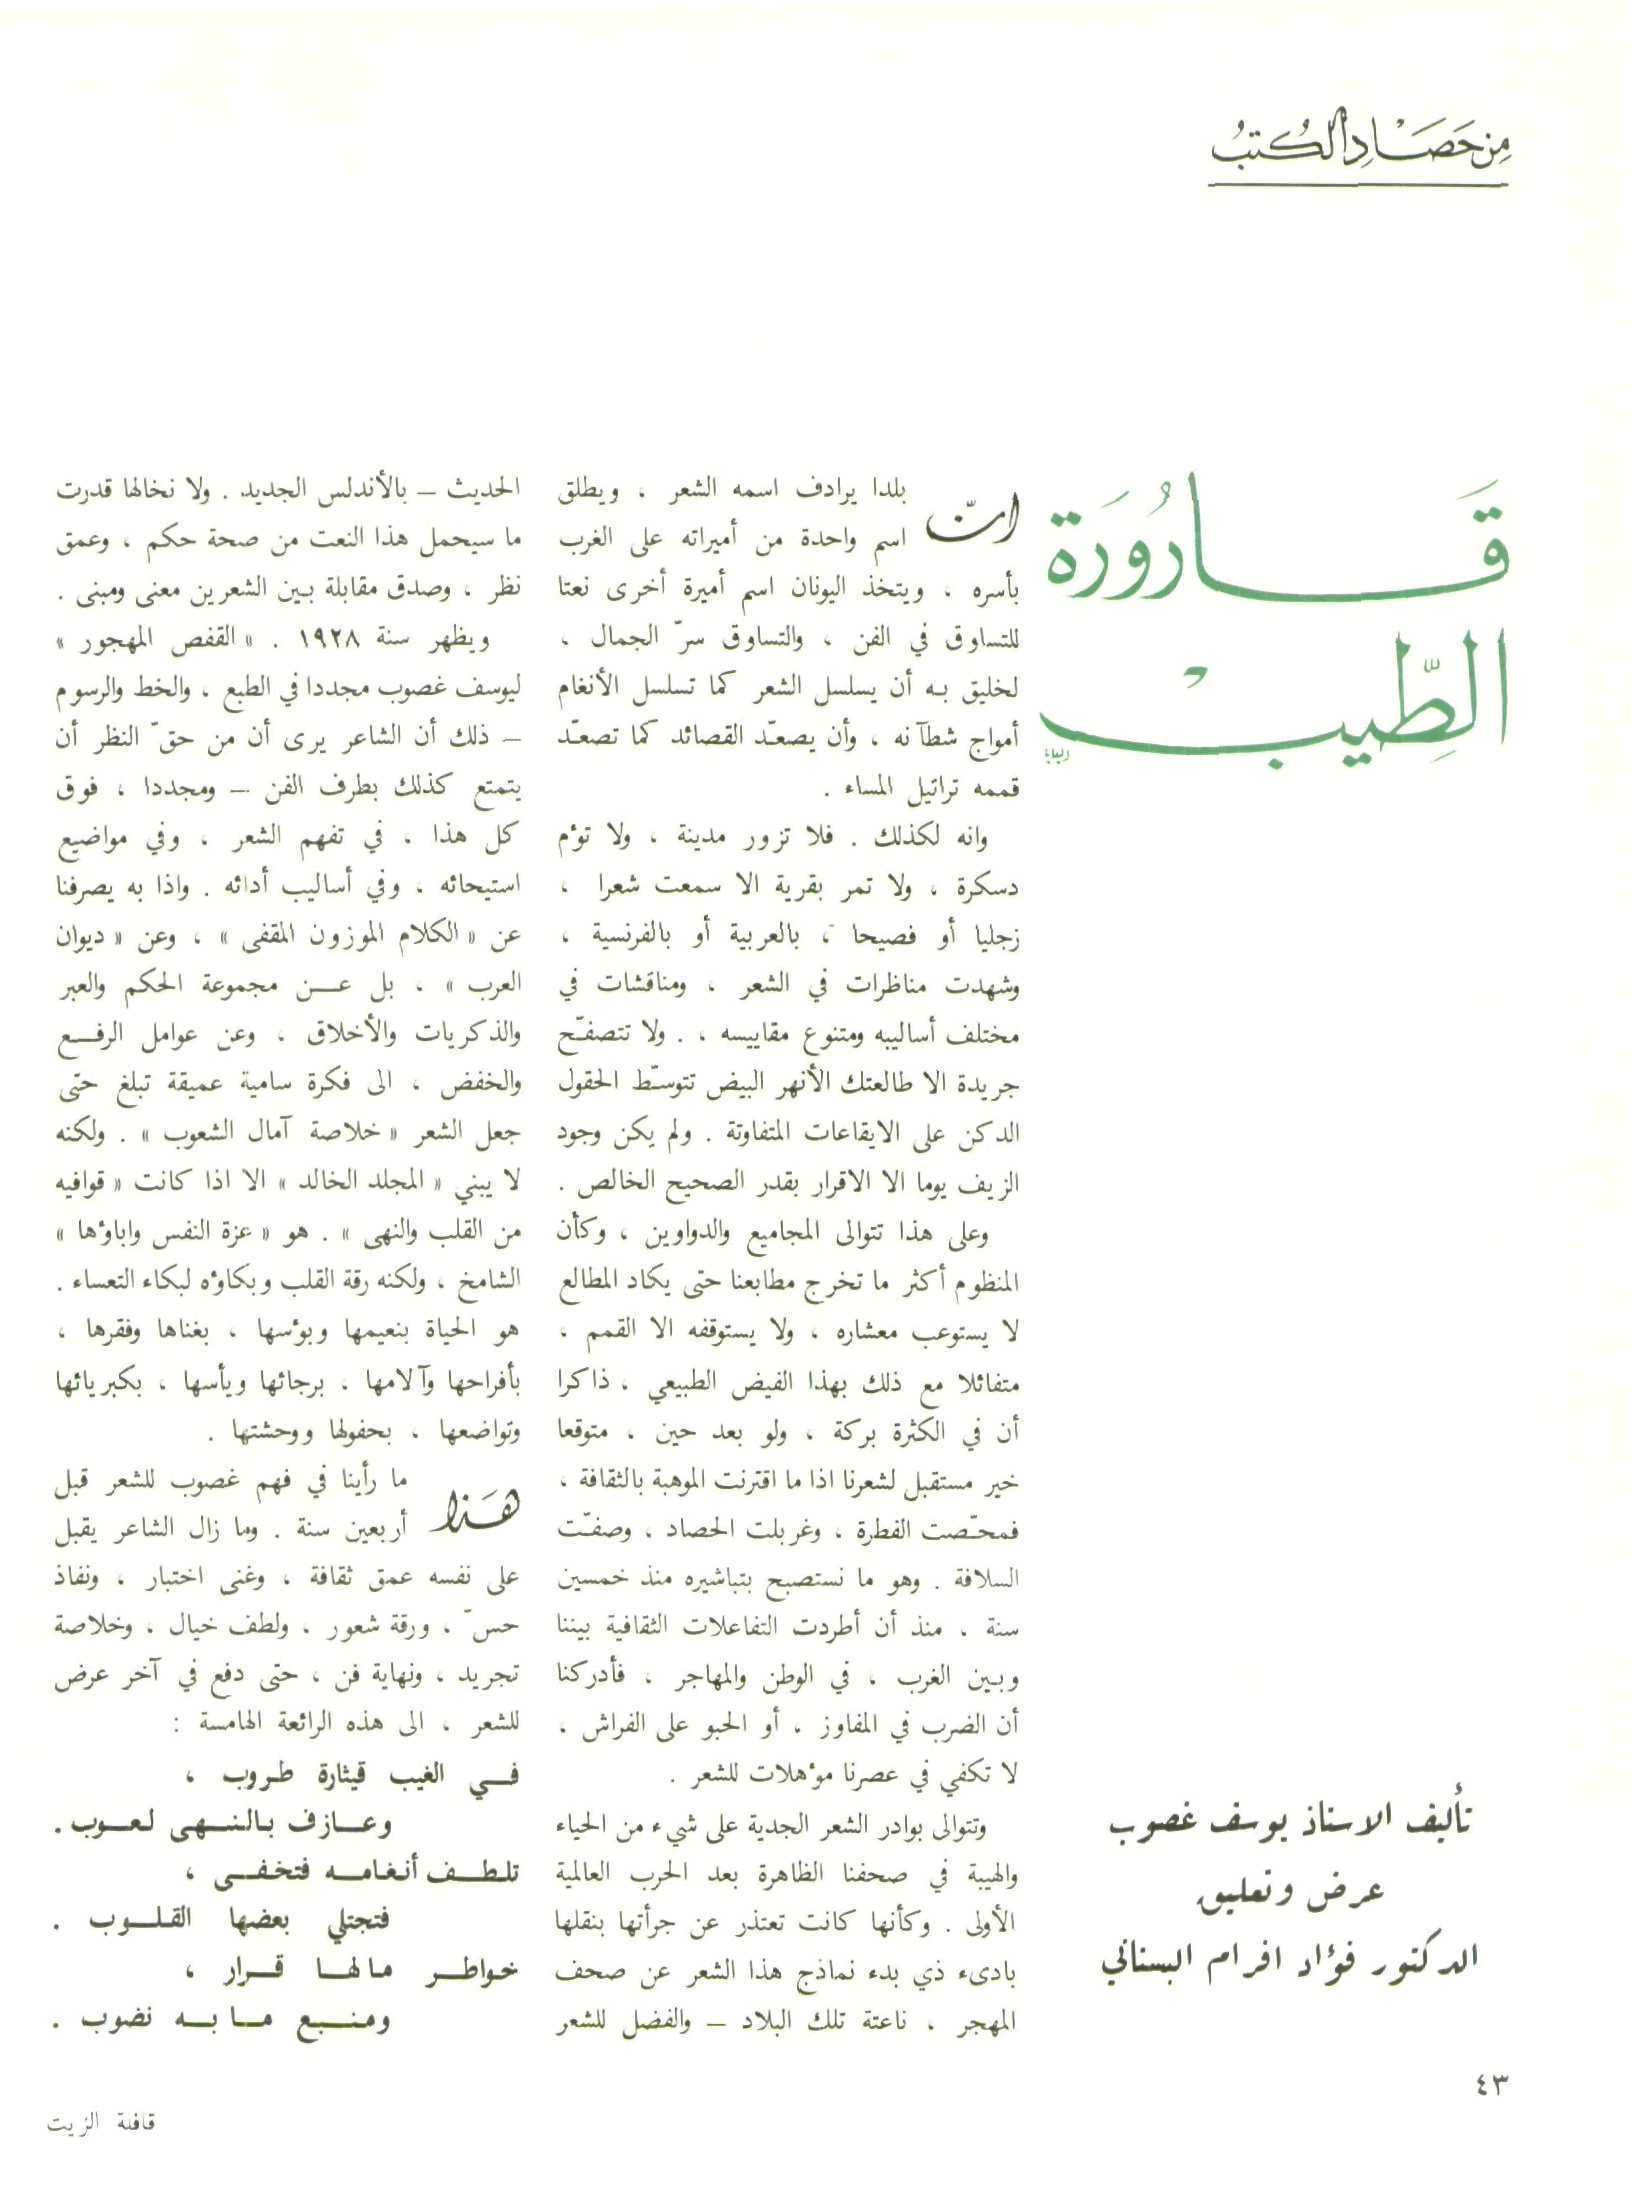 مِن حَصَادِ الكُتبُ
قَارُورَة
الطِّيبْ
تأليف الاستاذ يوسف غصوب
عرض وتعليق
الدكتور فؤاد افرام البستاني
انّ بلدا يرادف اسمه الشعر ، ويطلق
اسم واحدة من أميراته على الغرب
بأسره ، ويتخذ اليونان اسم أميرة أخرى نعتا
للتساوق في الفن ، والتساوق سرّ الجمال ،
لخليق به أن يسلسل الشعر كما تسلسل الأنغام
أمواج شطآنه ، وأن يصعّد القصائد كما تصعّد
قممه تراتيل المساء .
وانه لكذلك . فلا تزور مدينة ، ولا تؤم
دسكرة ، ولا تمر بقرية الا سمعت شعرا ،
زجليا أو فصيحا ، بالعربية أو بالفرنسية ،
وشهدت مناظرات في الشعر ، ومناقشات في
مختلف أساليبه ومتنوع مقاييسه ، . ولا تتصفّح
جريدة الا طالعتك الأنهر البيض تتوسّط الحقول
الدكن على الايقاعات المتفاوتة . ولم يكن وجود
الزيف يوما الا الاقرار بقدر الصحيح الخالص .
وعلى هذا تتوالى المجاميع والدواوين ، وكأن
المنظوم أكثر ما تخرج مطابعنا حتى يكاد المطالع
لا يستوعب معشاره ، ولا يستوقفه الا القمم ،
متفائلا مع ذلك بهذا الفيض الطبيعي ، ذاكرا
أن في الكثرة بركة ، ولو بعد حين ، متوقعا
خير مستقبل لشعرنا اذا ما اقترنت الموهبة بالثقافة ،
فمحّصت الفطرة ، وغربلت الحصاد ، وصفّت
السلافة . وهو ما نستصبح بتباشيره منذ خمسين
سنة ، منذ أن أطردت التفاعلات الثقافية بيننا
وبين الغرب ، في الوطن والمهاجر ، فأدركنا
أن الضرب في المفاوز ، أو الحبو على الفراش ،
لا تكفي في عصرنا مؤهلات للشعر .
وتتوالى بوادر الشعر الجدية على شيء من الحياء
والهيبة في صحفنا الظاهرة بعد الحرب العالمية
الأولى . وكأنها كانت تعتذر عن جرأتها بنقلها
بادىء ذي بدء نماذج هذا الشعر عن صحف
المهجر ، ناعتة تلك البلاد – والفضل للشعر
الحديث – بالأندلس الجديد . ولا نخالها قدرت
ما سيحمل هذا النعت من صحة حكم ، وعمق
نظر ، وصدق مقابلة بين الشعرين معنى ومبنى .
ويظهر سنة ١٩٢٨ . « القفص المهجور »
ليوسف غصوب مجددا في الطبع ، والخط والرسوم
– ذلك أن الشاعر يرى أن من حقّ النظر أن
يتمتع كذلك بطرف الفن – ومجددا ، فوق
كل هذا ، في تفهم الشعر ، وفي مواضيع
استيحائه ، وفي أساليب أدائه . واذا به يصرفنا
عن « الكلام الموزون المقفى » ، وعن « ديوان
العرب » ، بل عن مجموعة الحكم والعبر
والذكريات والأخلاق ، وعن عوامل الرفع
والخفض ، الى فكرة سامية عميقة تبلغ حتى
جعل الشعر « خلاصة آمال الشعوب » . ولكنه
لا يبني « المجلد الخالد » الا اذا كانت « قوافيه
من القلب والنهى » . هو « عزة النفس واباؤها »
الشامخ ، ولكنه رقة القلب وبكاؤه لبكاء التعساء .
هو الحياة بنعيمها وبؤسها ، بغناها وفقرها ،
بأفراحها وآلامها ، برجائها ويأسها ، بكبريائها
وتواضعها ، بحفولها ووحشتها .
هَذا ما رأينا في فهم غصوب للشعر قبل
أربعين سنة . وما زال الشاعر يقبل
على نفسه عمق ثقافة ، وغنى اختبار ، ونفاذ
حسّ ، ورقة شعور ، ولطف خيال ، وخلاصة
تجريد ، ونهاية فن ، حتى دفع في آخر عرض
للشعر ، الى هذه الرائعة الهامسة :
في الغيب قيثارة طروب ،
وعازف بالنهى لعوب .
تلطف أنغامه فتخفى ،
فتجتلي بعضها القلوب .
خواطر مالها قرار ،
ومنبع ما به نضوب .
٤٣
قافلة الزيت